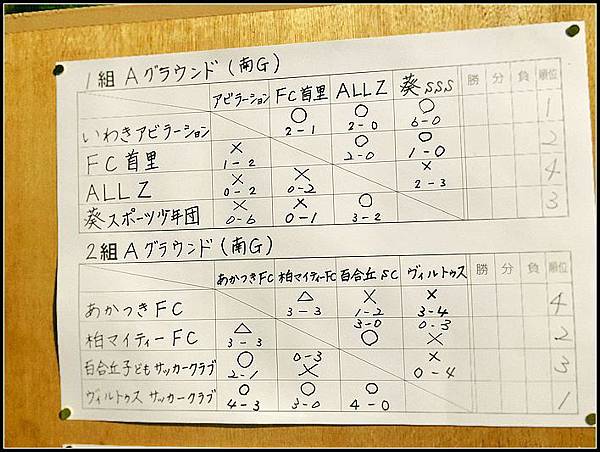 1組 Aグラウンド(南G)
アビラーション FC首里 ALLZ 葵SSS 勝 分 負 順位
いわきアビラーション ○ 2-1 ○ 2-0 ○ 6-0 1
FC首里 × 1-2 ○ 2-0 ○ 1-0 2
ALLZ × 0-2 × 0-2 × 2-3 4
葵スポーツ少年団 × 0-6 × 0-1 ○ 3-2 3
2組 Aグラウンド(南G)
あかつきFC 柏マイティーFC 百合丘SC ヴィルトゥス 勝 分 負 順位
あかつきFC △ 3-3 × 1-2 × 3-4 4
柏マイティーFC △ 3-3 3-0 ○ 0-3 × 2
百合丘子どもサッカークラブ ○ 2-1 0-3 × × 0-4 3
ヴィルトゥス サッカークラブ ○ 4-3 ○ 3-0 ○ 4-0 1